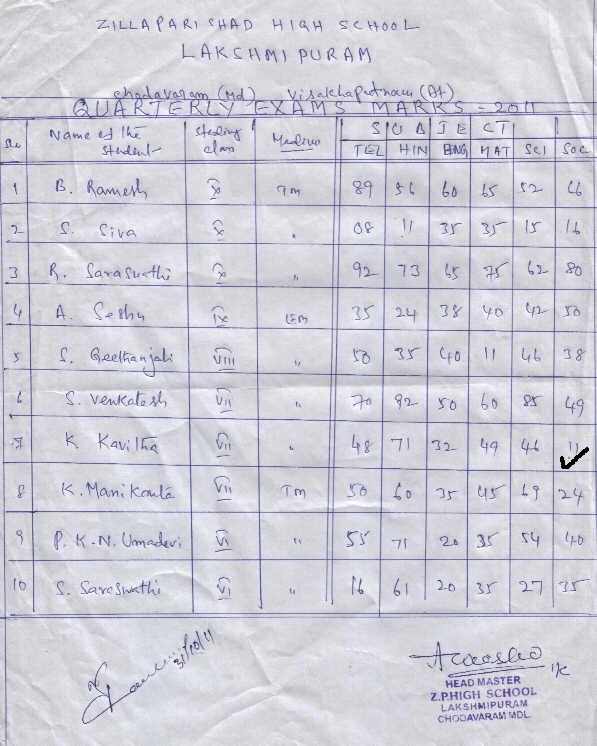 ZILLAPARISHAD HIGH SCHOOL
LAKSHMIPURAM
chodavaram (Md) Visakhapatnam (Dt)
QUARTERLY EXAMS MARKS - 2011
SUBJECT
Name of the student Studing class Medium TEL HIN ENG MAT SCI SOC
1 B. Ramesh X TM 89 56 60 65 52 66
2 S. Siva X " 08 11 35 35 15 16
3 R. Saraswathi X " 92 73 65 75 62 80
4 A. Seshu IX EM 35 24 38 40 42 50
5 S. Geethanjali VIII 50 35 40 11 46 38
6 S. Venkatesh VII " 70 92 50 60 85 49
7 K Kavitha VII " 48 71 32 49 46 11
8 K. Manikanta VII TM 50 60 35 45 69 24
9 P. K. N. Umadevi VI " 55 71 20 35 54 40
10 S. Saraswathi VI " 16 61 20 35 27 35
31/10/11
I/C
HEAD MASTER
Z.P.HIGH SCHOOL
LAKSHMIPURAM
CHODAVARAM MDL.